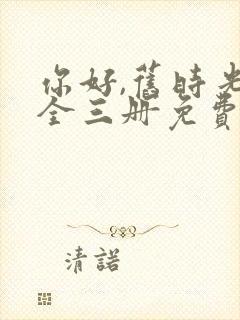 你好,舊時光
全三册免費
清諾